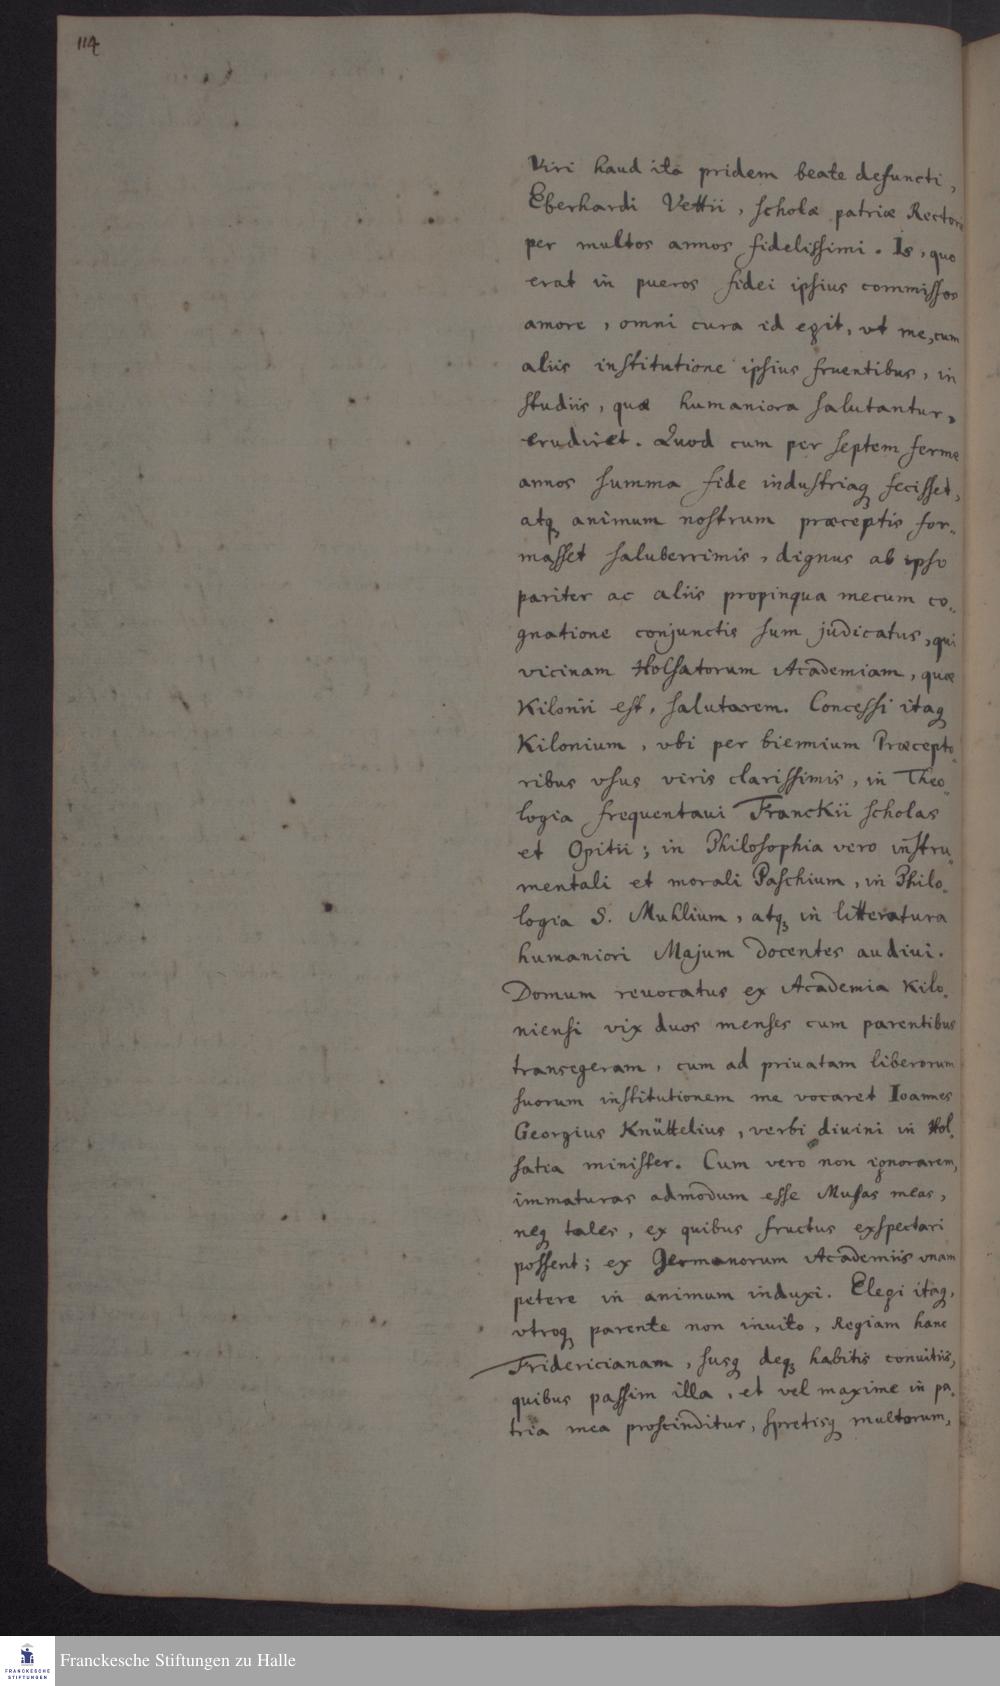 114
Viri haud ita pridem beate defuncti,
Eberhardi Vettii, scholæ patriæ Rectoris
per multos annos fidelissimi. Is, quo
erat in pueros fidei ipsius commissos
amore, omni cura id egit, vt me, cum
aliis institutione ipsius fruentibus, in
studiis, quæ humaniora salutantur,
erudiret. Quod cum per septem ferme
annos summa fide industriaq; fecisset,
atq; animum nostrum præceptis for-
masset saluberrimis, dignus ab ipso
pariter ac aliis propinqua mecum co-
gnatione conjunctis sum judicatus, qui
vicinam Holsatorum Academiam, quæ
Kilonii est, salutarem. Concessi itaq;
Kilonium, vbi per biennium Præcepto-
ribus vsus viris clarissimis, in Theo-
logia frequentaui Franckii scholas
et Opitii; in Philosophia vero instru-
mentali et morali Paschium, in Philo-
logia S. Muhlium, atq; in litteratura
humaniori Majum docentes audiui.
Domum reuocatus ex Academia Kilo-
niensi vix duos menses cum parentibus
transegeram, cum ad priuatam liberorum
suorum institutionem me vocaret Ioannes
Georgius Knüttelius, verbi diuini in Hol-
satia minister. Cum vero non ignorarem,
immaturas admodum esse Musas meas,
neq; tales, ex quibus fructus exspectari
possent; ex Germanorum Academiis vnam
petere in animum induxi. Elegi itaq;,
vtroq; parente non inuito, Regiam hanc
Fridericianam, susq; deq; habitis conuitiis,
quibus passim illa, et vel maxime in pa-
tria mea proscinditur, spretisq; multorum,
FRANCKESCHE
STIFTUNGEN
Franckesche Stiftungen zu Halle